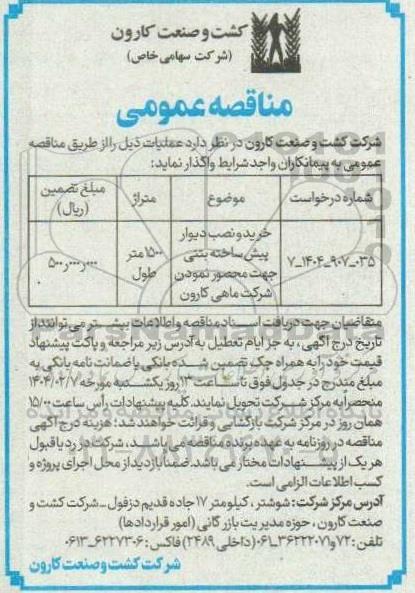 کشت و صنعت کارون
(شرکت سهامی خاص)
مناقصه عمومی
شرکت کشت و صنعت کارون در نظر دارد عملیات ذیل را از طریق مناقصه
عمومی به پیمانکاران واجد شرایط واگذار نماید:
شماره درخواست
موضوع
متراژ
مبلغ تضمین
(ریال)
۷_۱۴۰۴_۹۰۷_۰۳۵
خرید و نصب دیوار
پیش ساخته بتنی
جهت محصور نمودن
شرکت ماهی کارون
۱۵۰۰ متر
طول
۵۰۰٫۰۰۰٫۰۰۰
متقاضیان جهت دریافت اسناد مناقصه و اطلاعات بیشتر می توانند از
تاریخ درج آگهی، به جز ایام تعطیل به آدرس زیر مراجعه و پاکت پیشنهاد
قیمت خود را به همراه چک تضمین شده بانکی یا ضمانت نامه بانکی به
مبلغ مندرج در جدول فوق تا ساعت ۱۳ روز یکشنبه مورخه ۱۴۰۴/۰۲/۷
منحصرا به مرکز شرکت تحویل نمایند. کلیه پیشنهادات رأس ساعت ۱۵/۰۰
همان روز در مرکز شرکت بازگشایی و قرائت خواهند شد؛ هزینه درج آگهی
مناقصه در روزنامه به عهده برنده مناقصه می باشد، شرکت در رد یا قبول
هر یک از پیشنهادات مختار می باشد. ضمنا بازدید از محل اجرای پروژه و
کسب اطلاعات الزامی است.
آدرس مرکز شرکت: شوشتر، کیلومتر ۱۷ جاده قدیم دزفول _ شرکت کشت و
صنعت کارون ، حوزه مدیریت بازرگانی (امور قراردادها)
تلفن: ۷۲ و ۳۶۲۲۲۰۷۱_۰۶۱ (داخلی ۲۴۸۹) فاکس: ۶۲۲۷۳۰۶_۰۶۱۳
شرکت کشت و صنعت کارون